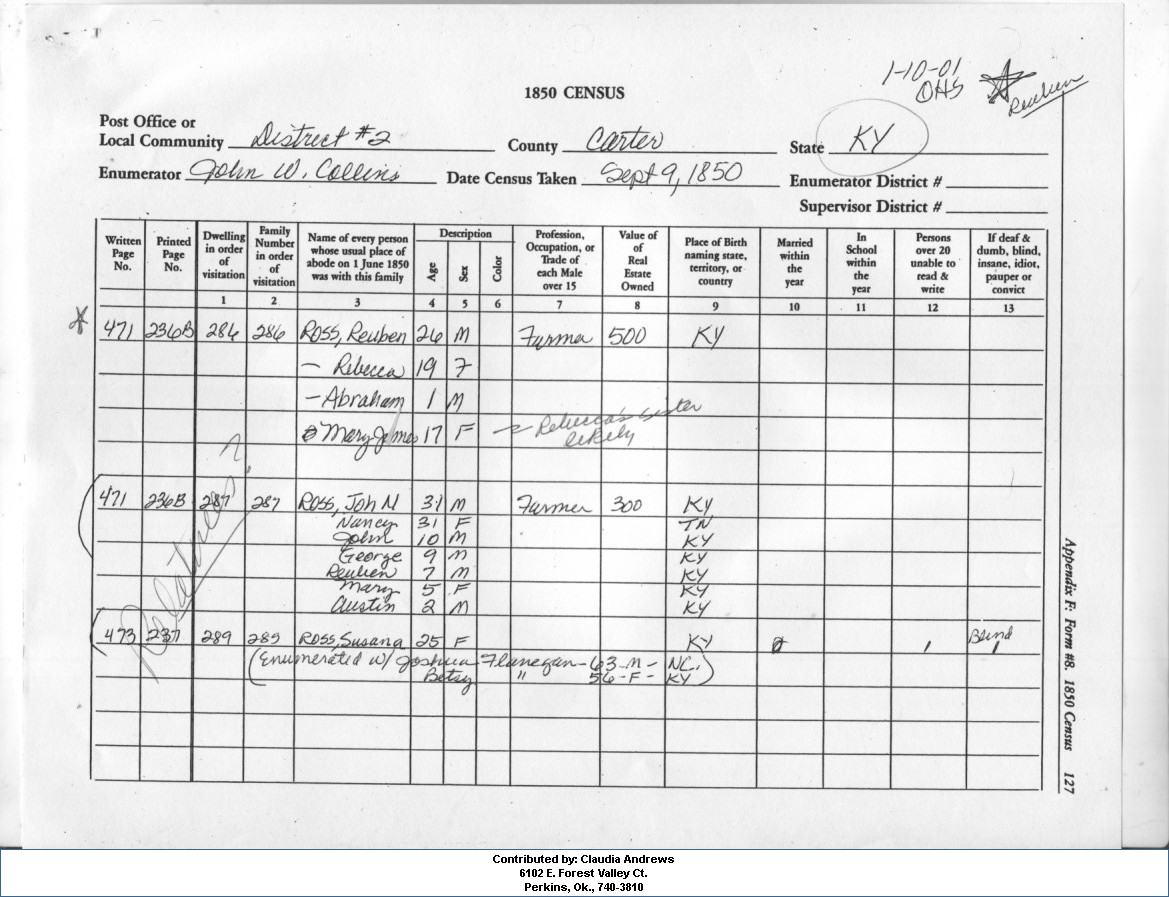 1-10-01
OHS
Reuben
1850 CENSUS
Post Office or
Local Community District #2 County Carter State KY
Enumerator John W. Collins Date Census Taken Sept 9, 1850 Enumerator District #
Supervisor District #
Written Page No. Printed Page No. Dwelling in order of visitation Family Number in order of visitation Name of every person whose usual place of abode on 1 June 1850 was with this family Description Age Sex Color Profession, Occupation, or Trade of each Male over 15 Value of of Real Estate Owned Place of Birth naming state, territory, or country Married within the year In School within the year Persons over 20 unable to read & write If deaf & dumb, blind, insane, idiot, pauper or convict
1 2 3 4 5 6 7 8 9 10 11 12 13
471 236B 286 286 Ross, Reuben 26 M Farmer 500 KY
- Rebecca 19 F
- Abraham 1 M
Mary James 17 F Rebecca's sister
likely
471 236B 287 287 Ross, Joh N 31 M Farmer 300 KY
Nancy 31 F TN
John 10 M KY
George 9 M KY
Reuben 7 M KY
Mary 5 F KY
Austin 2 M KY
Relatives?
473 237 289 289 Ross, Susana 25 F KY Blind
(Enumerated w/ Joshua Flanegan - 63 - M - NC.
Betsy " 56 - F - KY)
Appendix F: Form #8. 1850 Census 127
Contributed by: Claudia Andrews
6102 E. Forest Valley Ct.
Perkins, Ok., 740-3810